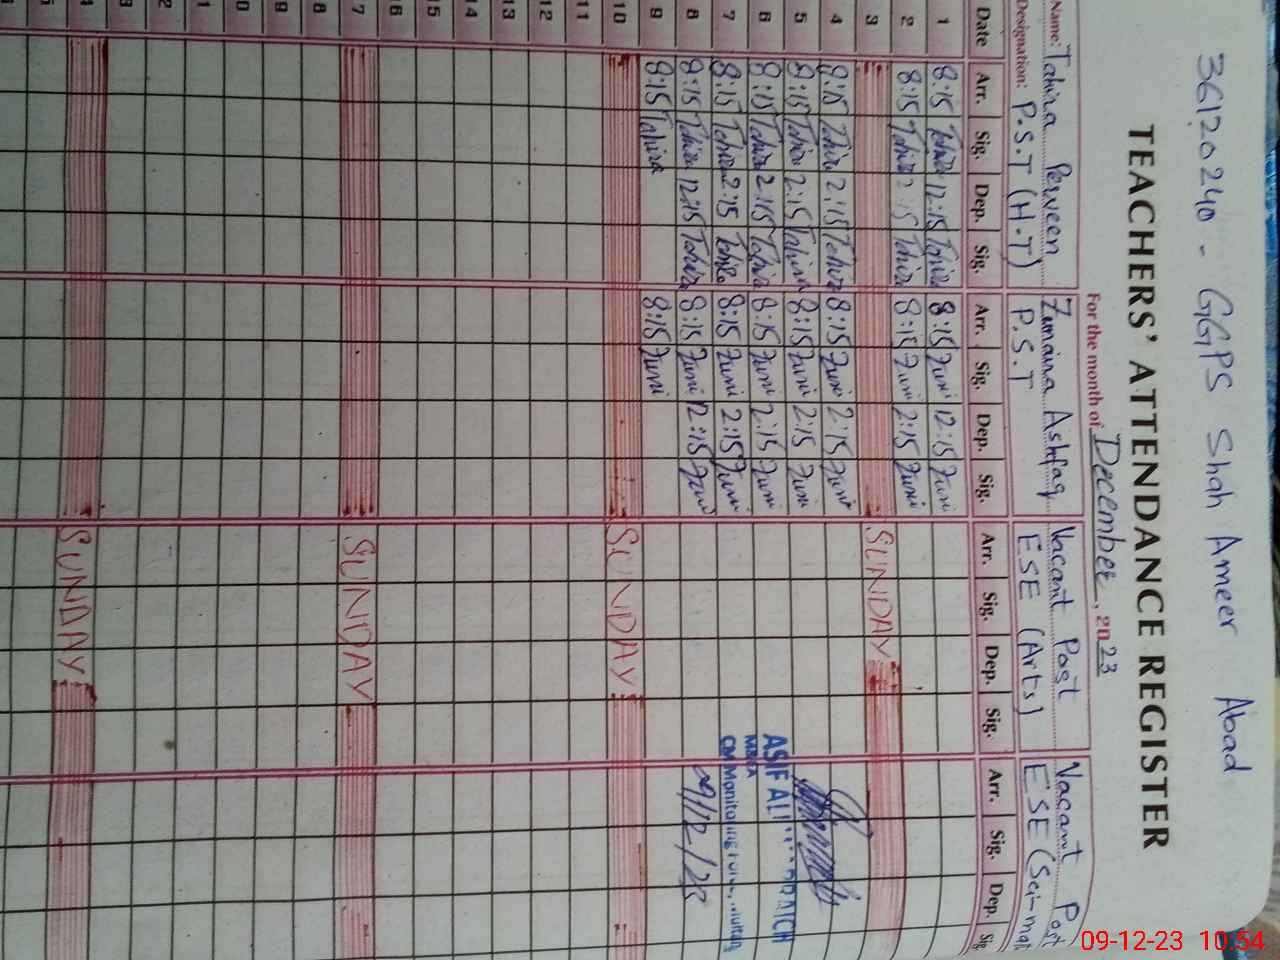 36120240 - GGPS Shah Ameer Abad
TEACHERS' ATTENDANCE REGISTER
For the month of December, 2023
Name: Tahira Perveen Zumaira Ashfaq Vacant Post Vacant Post
Designation: P.S.T (H.T) P.S.T ESE (Arts) ESE (Sci-mat
Date Arr. Sig. Dep. Sig. Arr. Sig. Dep. Sig. Arr. Sig. Dep. Sig. Arr. Sig. Dep. Sig
1 8:15 Tahira 12:15 Tahira 8:15 Zumi 12:15 Zumi
2 8:15 Tahira 2:15 Tahira 8:15 Zumi 2:15 Zumi
3 SUNDAY
4 8:15 Tahira 2:15 Tahira 8:15 Zumi 2:15 Zumi
5 8:15 Tahira 2:15 Tahira 8:15 Zumi 2:15 Zumi
6 8:15 Tahira 2:15 Tahira 8:15 Zumi 2:15 Zumi
7 8:15 Tahira 2:15 Tahira 8:15 Zumi 2:15 Zumi
8 8:15 Tahira 12:15 Tahira 8:15 Zumi 12:15 Zumi
9 8:15 Tahira 8:15 Zumi
10 SUNDAY
11
12
13
14
15
16
7 SUNDAY
8
9
0
1
2
3
4 SUNDAY
5
ASIF ALI
MEA
CM Monitoring Multan
09/12/23
09-12-23 10:54